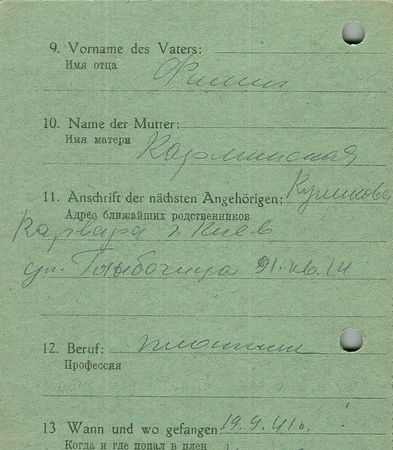 9. Vorname des Vaters:
Имя отца
Филипп
10. Name der Mutter:
Имя матери
Карпинская
11. Anschrift der nächsten Angehörigen: Куликова
Адрес ближайших родственников
Варвара г. Киев
ул. Глыбочица 91. кв. 14
12. Beruf: плотник
Профессия
13 Wann und wo gefangen: 19.9.41г.
Когда и где попал в плен